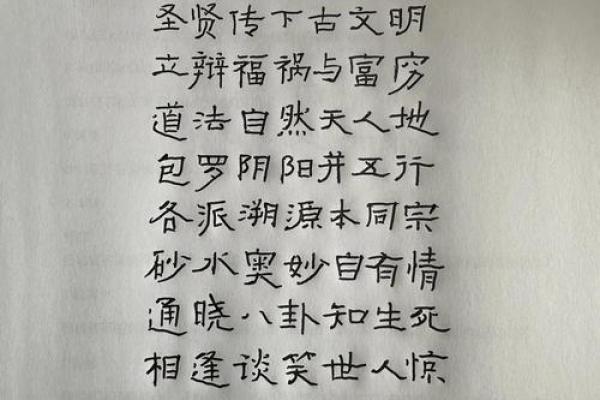 圣贤传下古文明
立辩福祸与富穷
道法自然天人地
包罗阴阳并五行
各派溯源本同宗
砂水奥妙自有情
通晓八卦知生死
相逢谈笑世人惊